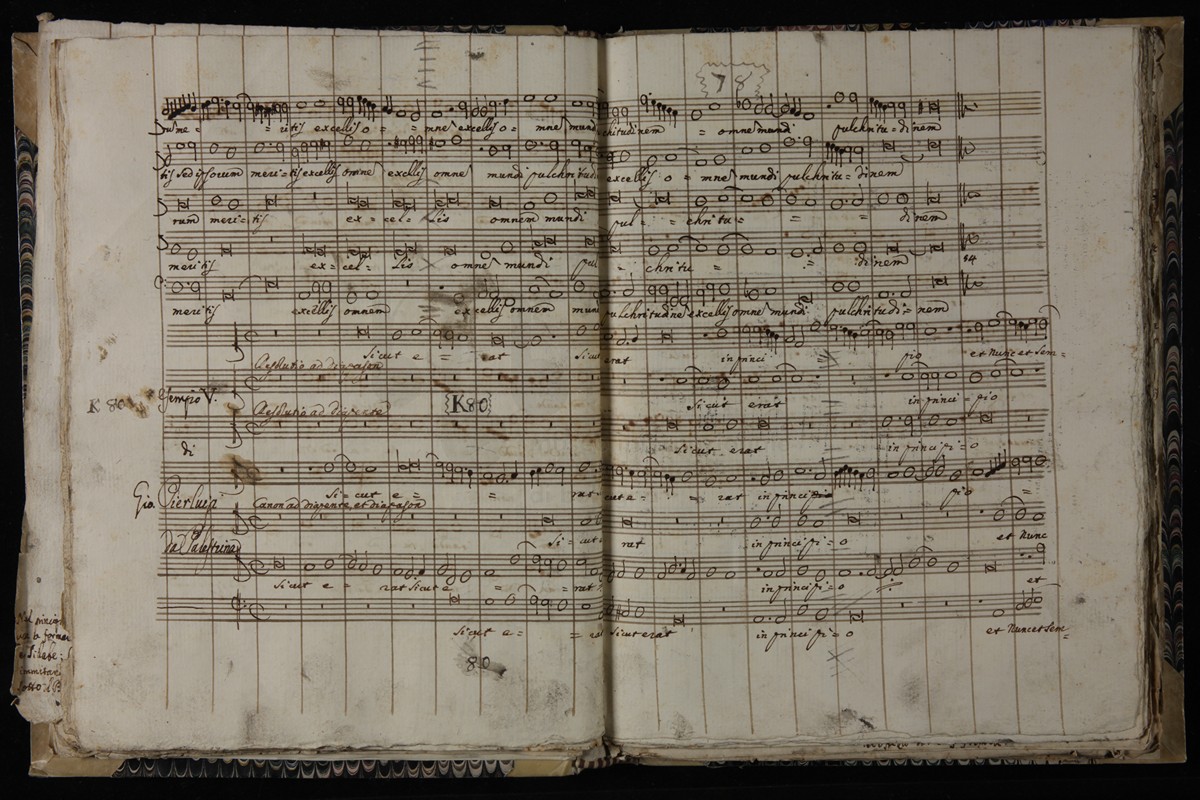 78
= ritis excellis o = = mne excellis o = mne mundi pulchritudinem = omne mundi pulchritu = dinem
tis sed ipsorum meri = tis excellis omne excellis omne mundi pulchritudi excellis o = mne mundi pulchritu = dinem
rum meri = tis ex = cel = lis omnem mundi pul = = chritu = = = dinem
meritis ex = cel = lis omne mundi pul = chritu = = dinem
meritis excellis omnem excellis omnem mun pulchritudine excellis omne mundi pulchritudi = nem
sicut e = rat sicut erat in princi pio et Nunc et Sem =
Resolutio ad diapason
K 80
Sempio V.
K80
sicut erat in princi = pio
Resolutio ad diapente
di
sicut erat in principi = o
Gio. Pierluigi
si = cut e = = rat cut e = rat in princi pio =
Canon ad diapente et diapason
da Palestrina
si = cut rat in principi = o et Nunc
sicut e = rat sicut e = rat in principi = o et
sicut e = = rat sicut erat in principi = o et Nunc et Sem =
80